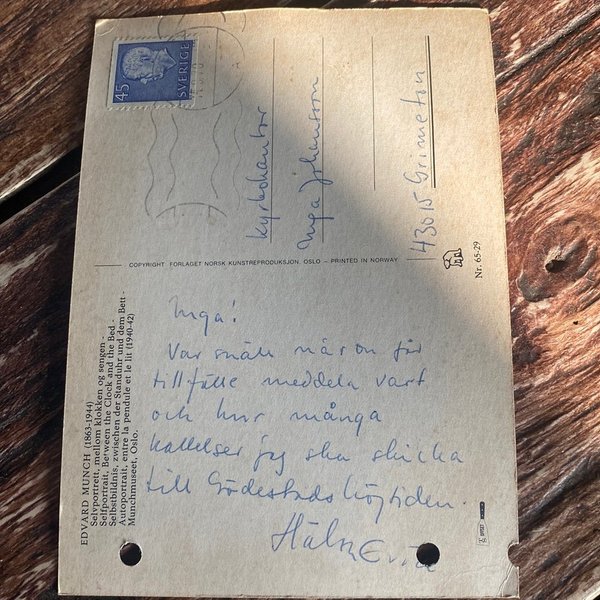 45 SVERIGE
Kyrkokantor
Inga Johansson
43015 Grimeton
COPYRIGHT FORLAGET NORSK KUNSTREPRODUKSJON, OSLO – PRINTED IN NORWAY
Nr. 65-29
Inga!
Var snäll får
tillfälle meddela vart
och hur många
kallelser jag ska skicka
till Gödestads högtiden.
Hälsn
EDVARD MUNCH (1863-1944)
Selvportrett, mellom klokken og sengen -
Selfportrait, Between the Clock and the Bed -
Selbstbildnis, zwischen der Standuhr und dem Bett -
Autoportrait, entre la pendule et le lit (1940-42)
Munchmuseet, Oslo.